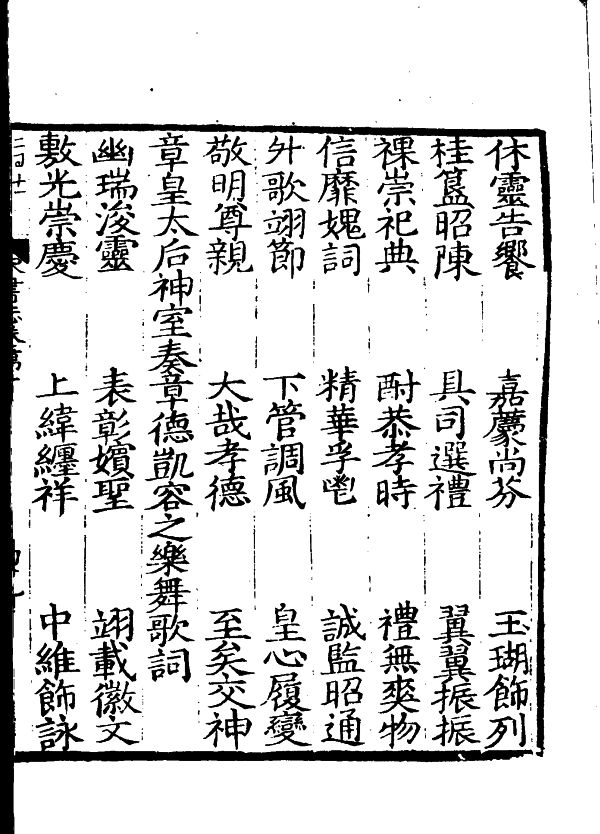 休靈告饗　嘉薦尚芬　玉瑚飾列
桂簋昭陳　具司選禮　翼翼振振
祼崇祀典　酎恭孝時　禮無爽物
信靡媿詞　精華孚鬯　誠監昭通
升歌翊節　下管調風　皇心履變
敬明尊親　大哉孝德　至矣交神
章皇太后神室奏章德凱容之樂舞歌詞
幽瑞浚靈　表彰嬪聖　翊載徽文
敷光崇慶　上緯纏祥　中維飾詠